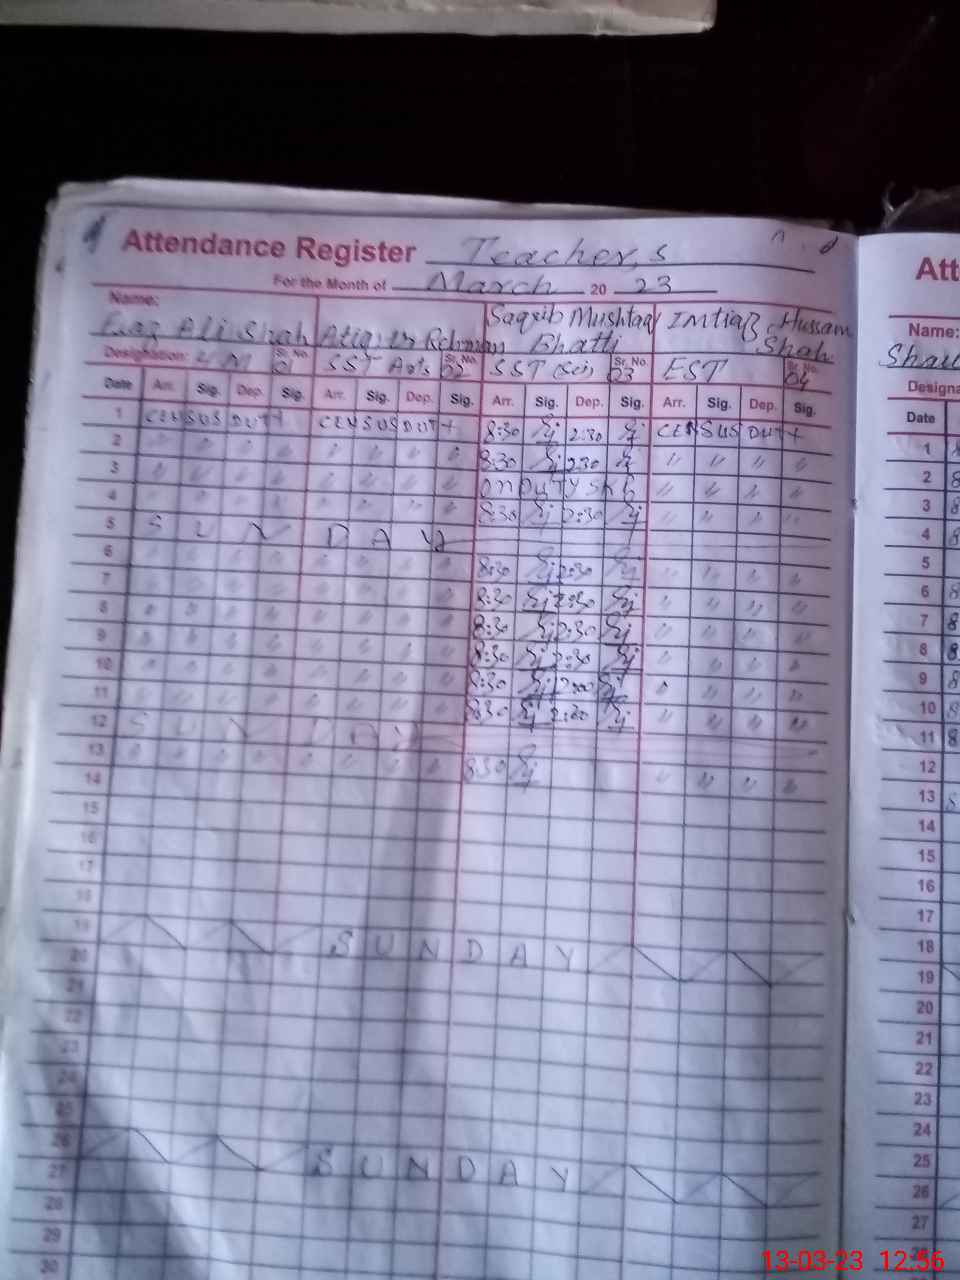 Attendance Register Teacher,s
For the Month of March 20 23
Name:
Ali Shah Atiq ur Rehman Saqib Mushtaq Bhatti Imtiaz Hussain Shah
Designation: Sr. No. 01 SST Arts Sr. No. 02 SST (Sci) Sr. No. 03 EST Sr. No. 04
Date Arr. Sig. Dep. Sig. Arr. Sig. Dep. Sig. Arr. Sig. Dep. Sig. Arr. Sig. Dep. Sig.
1 CENSUS DUTY CENSUS DUTY 8:30 2:30 CENSUS DUTY
2 " " " " " " " " 8:30 230 " " " "
3 " " " " " " " " On DUTY " " " "
4 " " " " " " " " 8:30 2:30 " " "
5 SUN DAY
6 " " " " " " " " 8:30 2:30 " " " "
7 " " " " " " " " 8:30 2:30 " " " "
8 " " " " " " " " 8:30 2:30 " " " "
9 " " " " " " " " 8:30 2:30 " " " "
10 " " " " " " " " 8:30 " " " "
11 " " " " " " " " 830 2:30 " " " "
12 SUN DAY
13 " " " " " " " " 830 " " " "
14
15
16
17
18
19 SUNDAY
20
21
22
23
24
25
26 SUNDAY
27
28
29
30
Att
Name:
Designa
Date
1
2 8
3 8
4 8
5
6 8
7 8
8 8
9 8
10 8
11 8
12
13
14
15
16
17
18
19
20
21
22
23
24
25
26
27
28
13-03-23 12:56